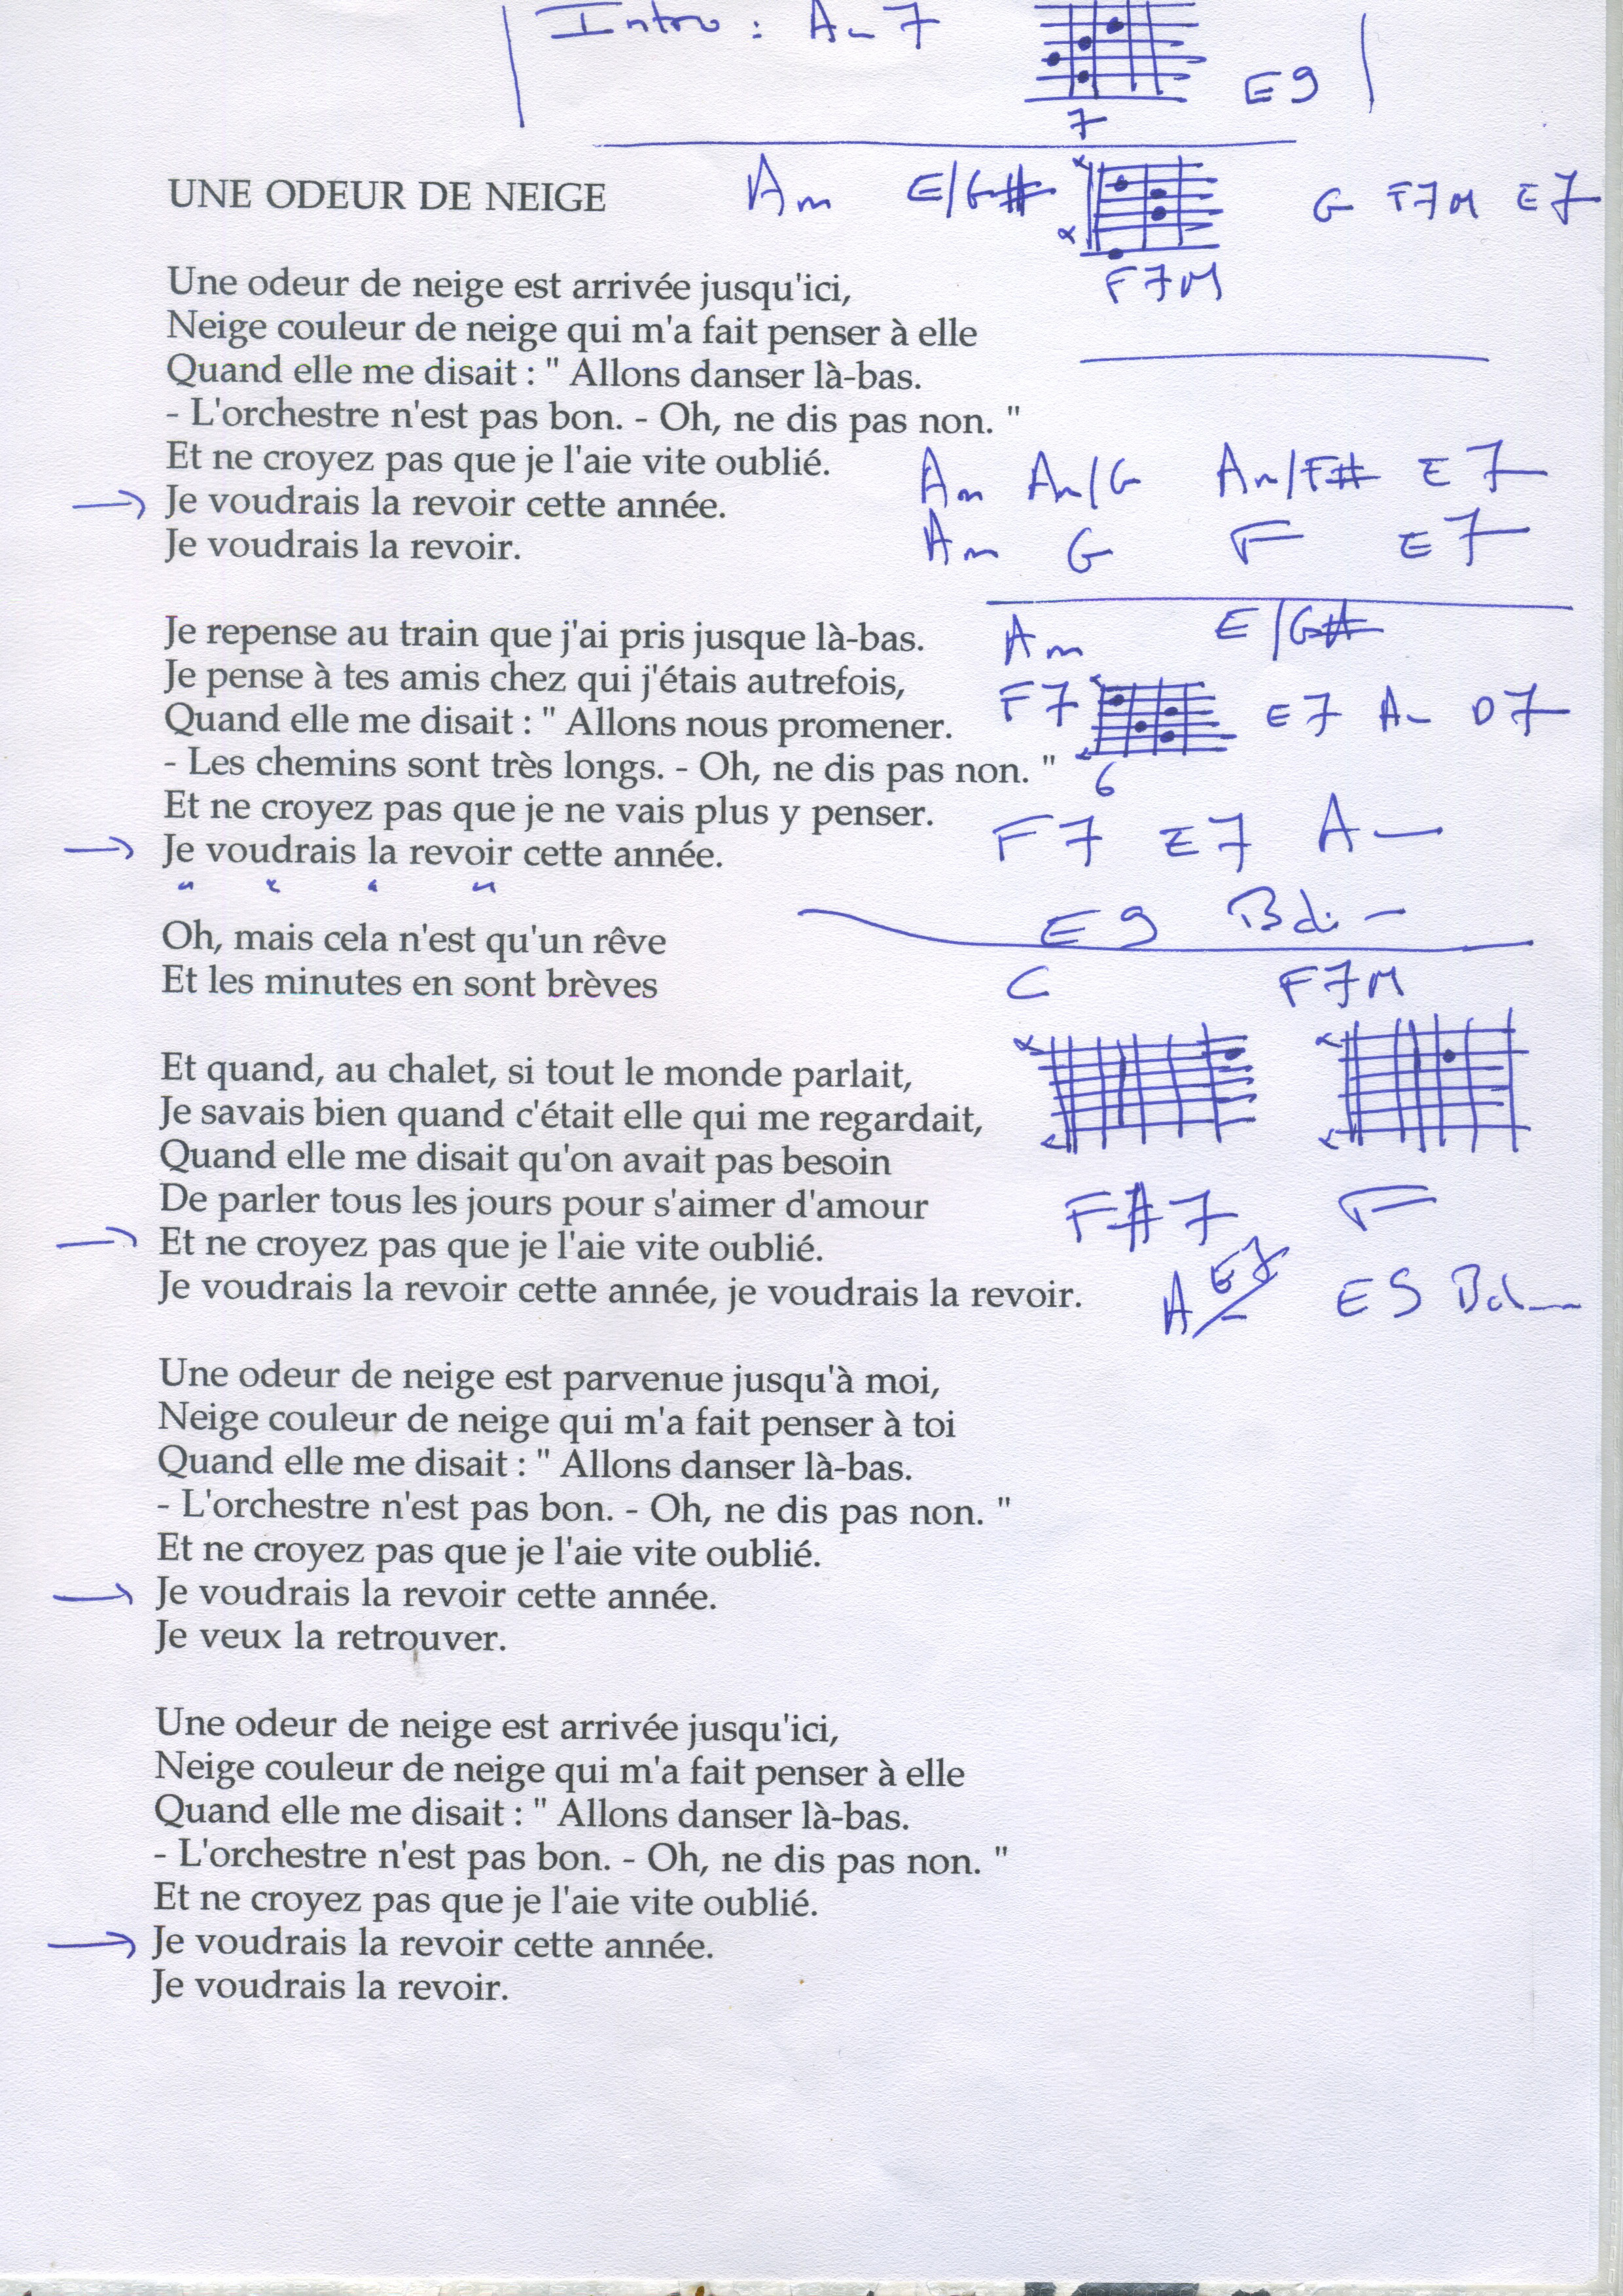 Intro : A-7
E9
7
UNE ODEUR DE NEIGE Am E/G# G F7M E7
F7M
Une odeur de neige est arrivée jusqu'ici,
Neige couleur de neige qui m'a fait penser à elle
Quand elle me disait : " Allons danser là-bas.
- L'orchestre n'est pas bon. - Oh, ne dis pas non. "
Et ne croyez pas que je l'aie vite oublié. Am Am/G Am/F# E7
Je voudrais la revoir cette année.
Je voudrais la revoir. Am G F E7
Je repense au train que j'ai pris jusque là-bas. Am E/G#
Je pense à tes amis chez qui j'étais autrefois,
Quand elle me disait : " Allons nous promener. F7 E7 A- D7
- Les chemins sont très longs. - Oh, ne dis pas non. " 6
Et ne croyez pas que je ne vais plus y penser.
Je voudrais la revoir cette année. F7 E7 A-
Oh, mais cela n'est qu'un rêve E9
Et les minutes en sont brèves C F7M
Et quand, au chalet, si tout le monde parlait,
Je savais bien quand c'était elle qui me regardait,
Quand elle me disait qu'on avait pas besoin
De parler tous les jours pour s'aimer d'amour F#7 F
Et ne croyez pas que je l'aie vite oublié.
Je voudrais la revoir cette année, je voudrais la revoir.
Une odeur de neige est parvenue jusqu'à moi,
Neige couleur de neige qui m'a fait penser à toi
Quand elle me disait : " Allons danser là-bas.
- L'orchestre n'est pas bon. - Oh, ne dis pas non. "
Et ne croyez pas que je l'aie vite oublié.
Je voudrais la revoir cette année.
Je veux la retrouver.
Une odeur de neige est arrivée jusqu'ici,
Neige couleur de neige qui m'a fait penser à elle
Quand elle me disait : " Allons danser là-bas.
- L'orchestre n'est pas bon. - Oh, ne dis pas non. "
Et ne croyez pas que je l'aie vite oublié.
Je voudrais la revoir cette année.
Je voudrais la revoir.